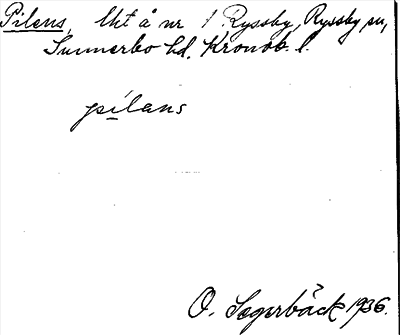 Pilens, lht å nr 1 Ryssby, Ryssby sn,
Sunnerbo hd. Kronob. l.
pilans
O. Segerbäck 1936.